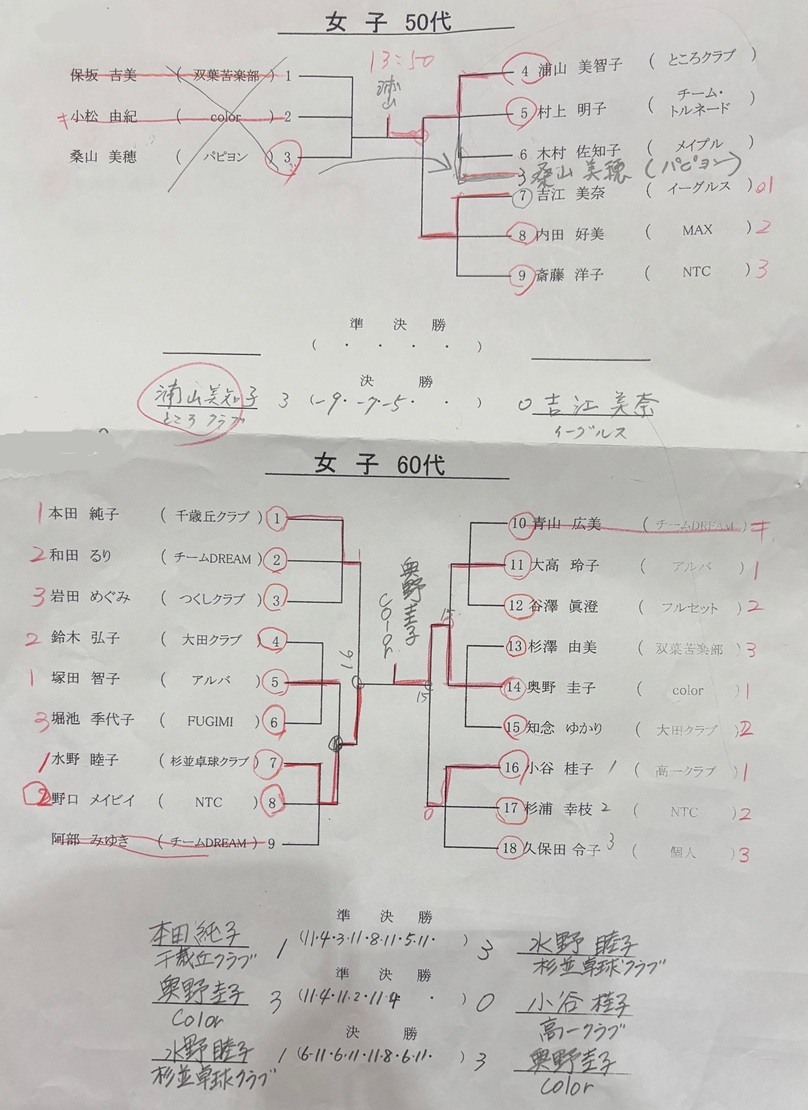 女子 50代
保坂 吉美 ( 双葉苦楽部 ) 1
キ 小松 由紀 ( color ) 2
桑山 美穂 ( パピヨン ) 3
13:50
浦山
4 浦山 美智子 ( ところクラブ )
5 村上 明子 ( チーム・トルネード )
6 木村 佐知子 ( メイプル )
3 桑山 美穂 (パピヨン)
7 吉江 美奈 ( イーグルス ) 1
8 内田 好美 ( MAX ) 2
9 斎藤 洋子 ( NTC ) 3
準決勝
( ・ ・ ・ ・ )
決勝
浦山美知子 3 (-9・-7-5・ ・ ) 0 吉江 美奈
ところクラブ イーグルス
女子 60代
1 本田 純子 ( 千歳丘クラブ ) 1
2 和田 るり ( チームDREAM ) 2
3 岩田 めぐみ ( つくしクラブ ) 3
2 鈴木 弘子 ( 大田クラブ ) 4
1 塚田 智子 ( アルバ ) 5
3 堀池 季代子 ( FUGIMI ) 6
1 水野 睦子 ( 杉並卓球クラブ ) 7
2 野口 メイビイ ( NTC ) 8
阿部 みゆき ( チームDREAM ) 9
16
奥野圭子
color
15
15
0
10 青山 広美 ( チームDREAM ) キ
11 大高 玲子 ( アルバ ) 1
12 谷澤 眞澄 ( フルセット ) 2
13 杉澤 由美 ( 双葉苦楽部 ) 3
14 奥野 圭子 ( color ) 1
15 知念 ゆかり ( 大田クラブ ) 2
16 小谷 桂子 1 ( 高一クラブ ) 1
17 杉浦 幸枝 2 ( NTC ) 2
18 久保田 令子 3 ( 個人 ) 3
準決勝
本田純子 1 (11・4・3・11・8・11・5・11・ ) 3 水野 睦子
千歳丘クラブ 杉並卓球クラブ
準決勝
奥野圭子 3 (11・4・11・2・11・4 ・ ) 0 小谷 桂子
color 高一クラブ
決勝
水野睦子 1 (6・11・6・11・11・8・6・11・ ) 3 奥野圭子
杉並卓球クラブ color